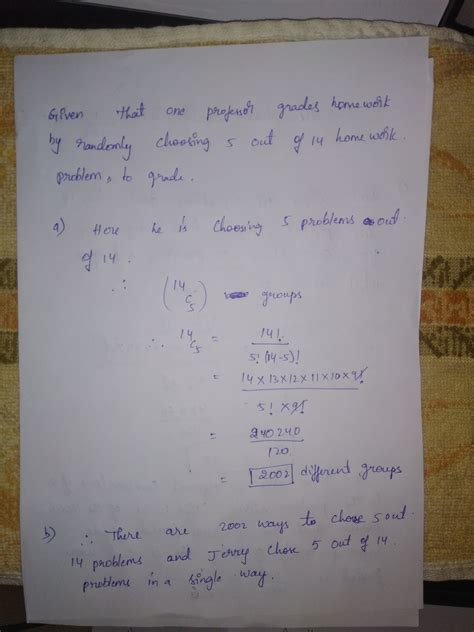 Given that one professor grades homework
by randomly choosing 5 out of 14 homework
problems to grade.
a) Here he is choosing 5 problems out
of 14.
∴ (14C5) groups
∴ 14C5 = 14! / 5! (14-5)!
= 14×13×12×11×10×9! / 5! × 9!
= 240240 / 120
= 2002 different groups
b) ∴ There are 2002 ways to chose 5 out
14 problems and Jerry chose 5 out of 14
problems in a single way.